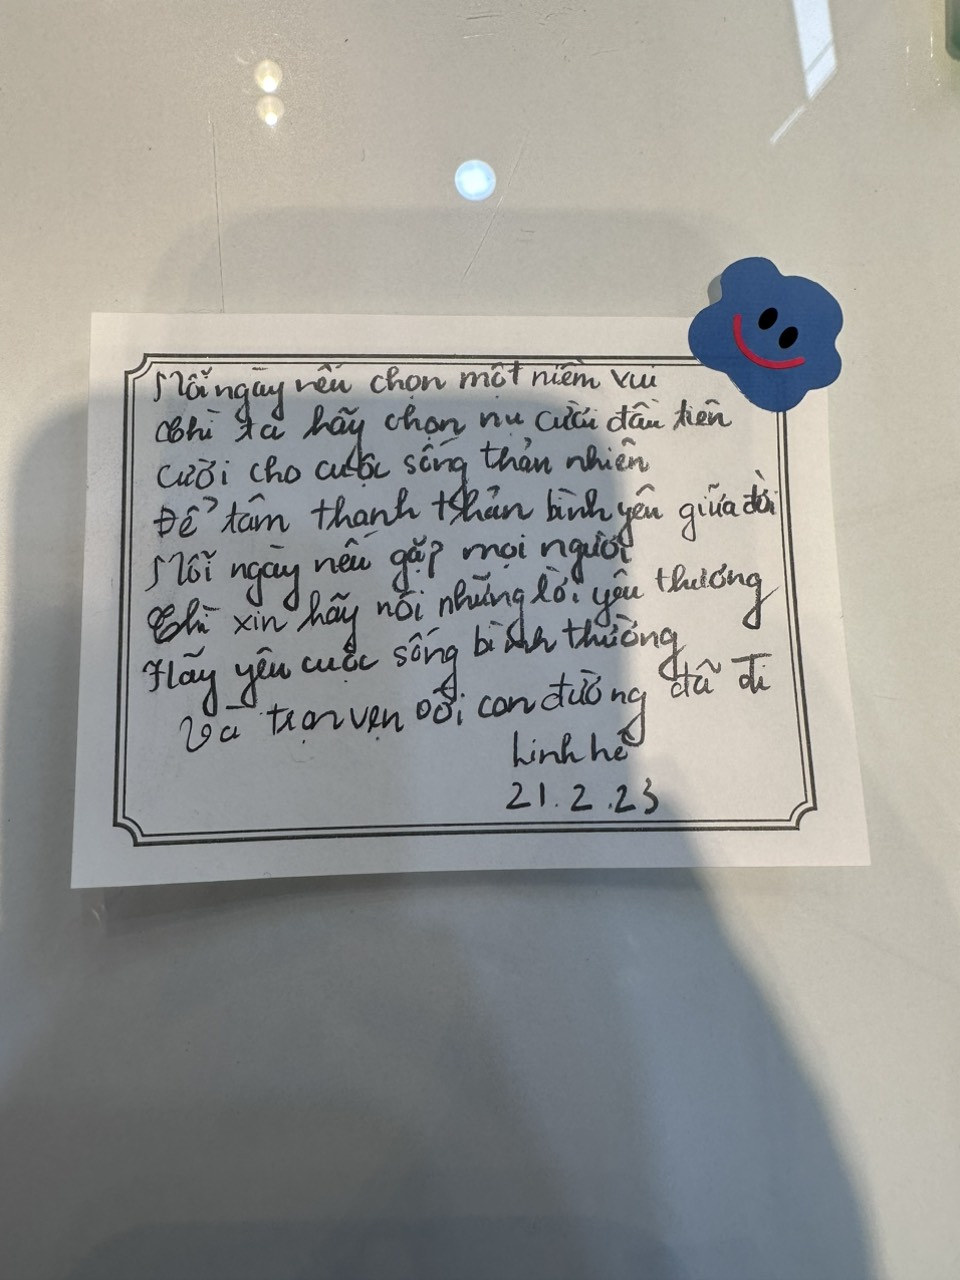 Mỗi ngày nếu chọn một niềm vui
Thì ta hãy chọn nụ cười đầu tiên
Cười cho cuộc sống thản nhiên
Để tâm thanh thản bình yên giữa đời
Mỗi ngày nếu gặp mọi người
Thì xin hãy nói những lời yêu thương
Hãy yêu cuộc sống bình thường
Và trọn vẹn với con đường đã đi
Linh
21.2.23